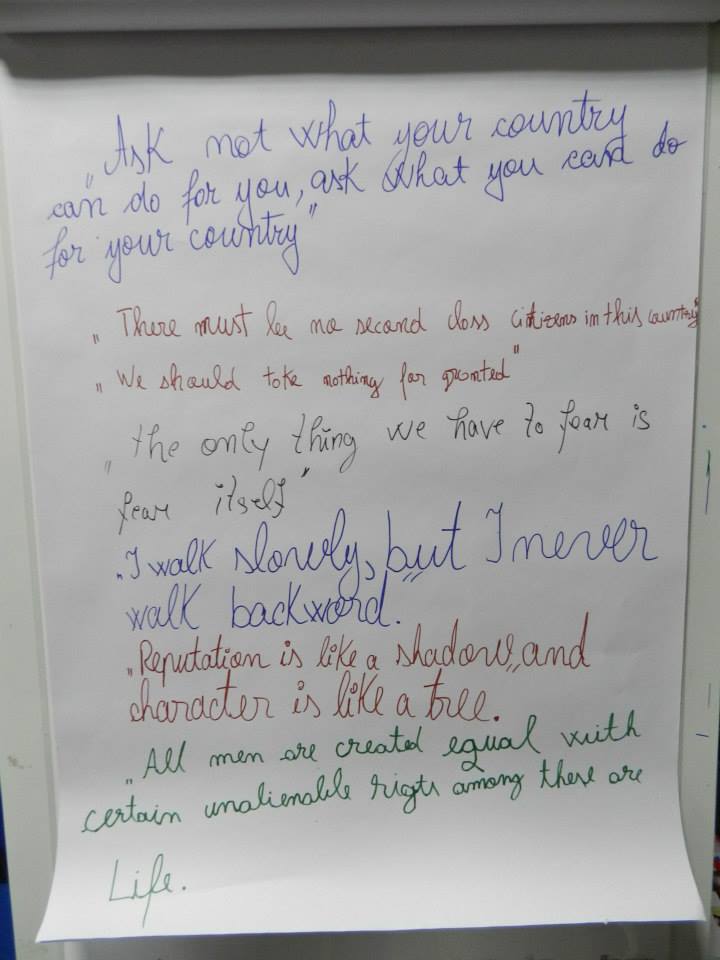 „Ask not what your country
can do for you, ask what you can do
for your country"
„There must be no second class citizens in this country"
„We should take nothing for granted"
„the only thing we have to fear is
fear itself"
„I walk slowly, but I never
walk backword."
„Reputation is like a shadow, and
character is like a tree."
„All men are created equal with
certain unalienable rigts among these are
Life.